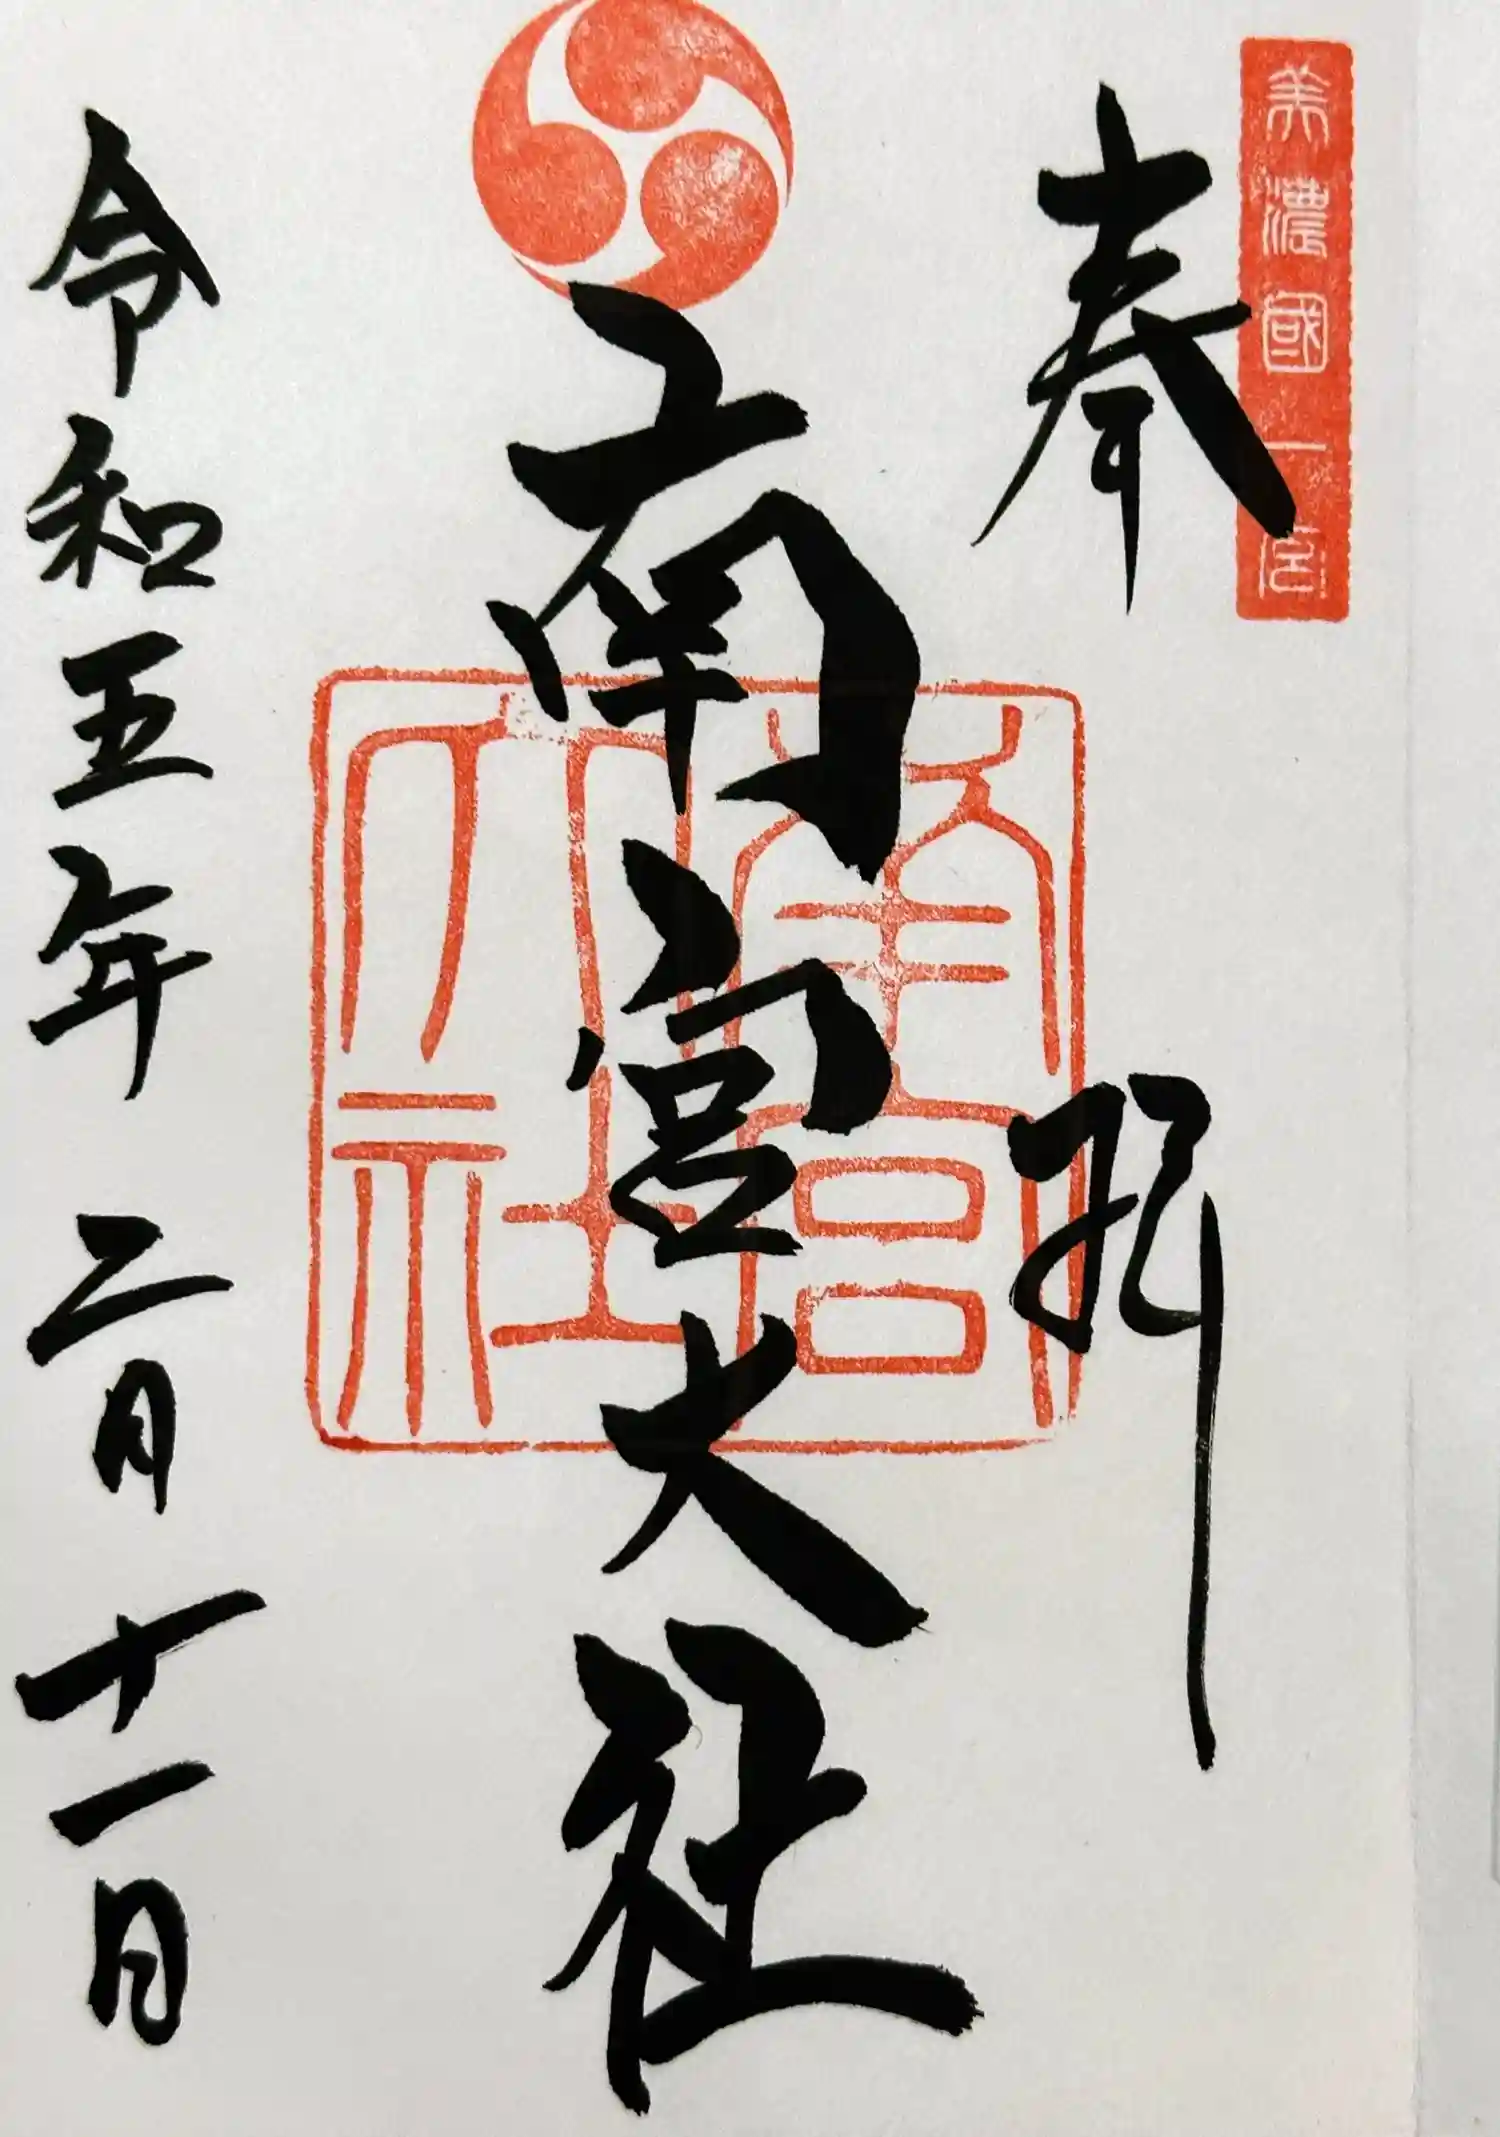 美濃國一宮
奉拝
南宮大社
南宮大社
令和五年二月十一日